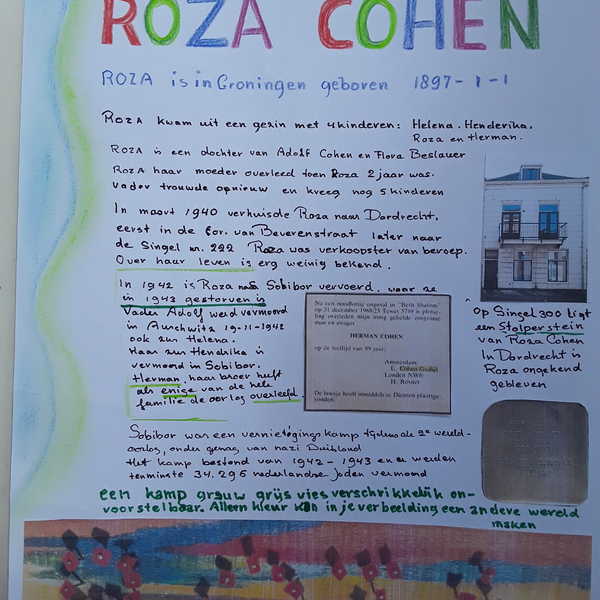 ROZA COHEN
ROZA is in Groningen geboren 1897-1-1
Roza kwam uit een gezin met 4 kinderen: Helena. Henderika.
Roza en Herman.
Roza is een dochter van Adolf Cohen en Flora Beslauer
Roza haar moeder overleed toen Roza 2 jaar was.
Vader trouwde opnieuw en kreeg nog 5 kinderen
In maart 1940 verhuisde Roza naar Dordrecht,
eerst in de Cor. van Beverenstraat later naar
de Singel nr. 222 Roza was verkoopster van beroep.
Over haar leven is erg weinig bekend.
In 1942 is Roza naar Sobibor vervoerd. waar ze
in 1943 gestorven is
Vader Adolf werd vermoord
in Auschwitz 19-11-1942
ook zus Helena.
Haar zus Hendrika is
vermoord in Sobibor.
Herman, haar broer heeft
als enige van de hele
familie de oorlog overleefd.
Na een noodlottig ongeval in "Beth Shalom"
op 31 december 1968/25 Tewet 5729 is plotse-
ling overleden mijn innig geliefde zorgzame
man en zwager
HERMAN COHEN
op de leeftijd van 69 jaar.
Amsterdam:
Londen NW6:
De besloten heeft inmiddels in Diemen plaatsge-
vonden.
op Singel 300 ligt
een Stolperstein
van Roza Cohen
In Dordrecht is
Roza ongekend
gebleven
Sobibor was een vernietigings kamp tijdens de 2e wereld-
oorlog, onder gezag van nazi Duitsland
Het kamp bestond van 1942-1943 en er werden
tenminste 34.295 nederlandse Joden vermoord
een kamp grauw grijs vies verschrikkelijk on-
voorstelbaar. Alleen kleur kan in je verbeelding een andere wereld
maken